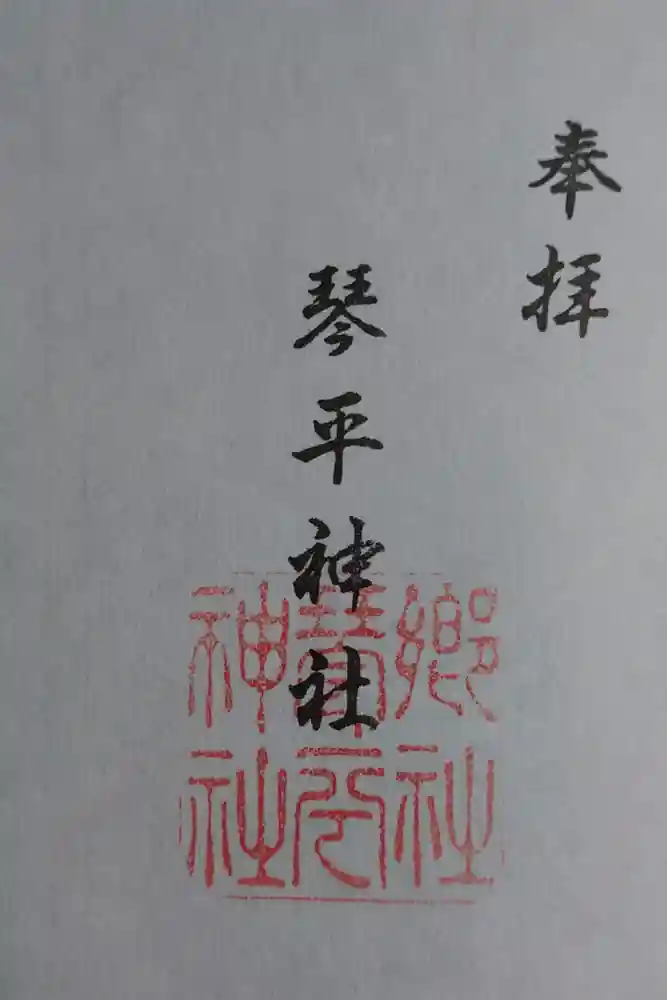 奉拝
琴平神社
郷社
琴平
神社